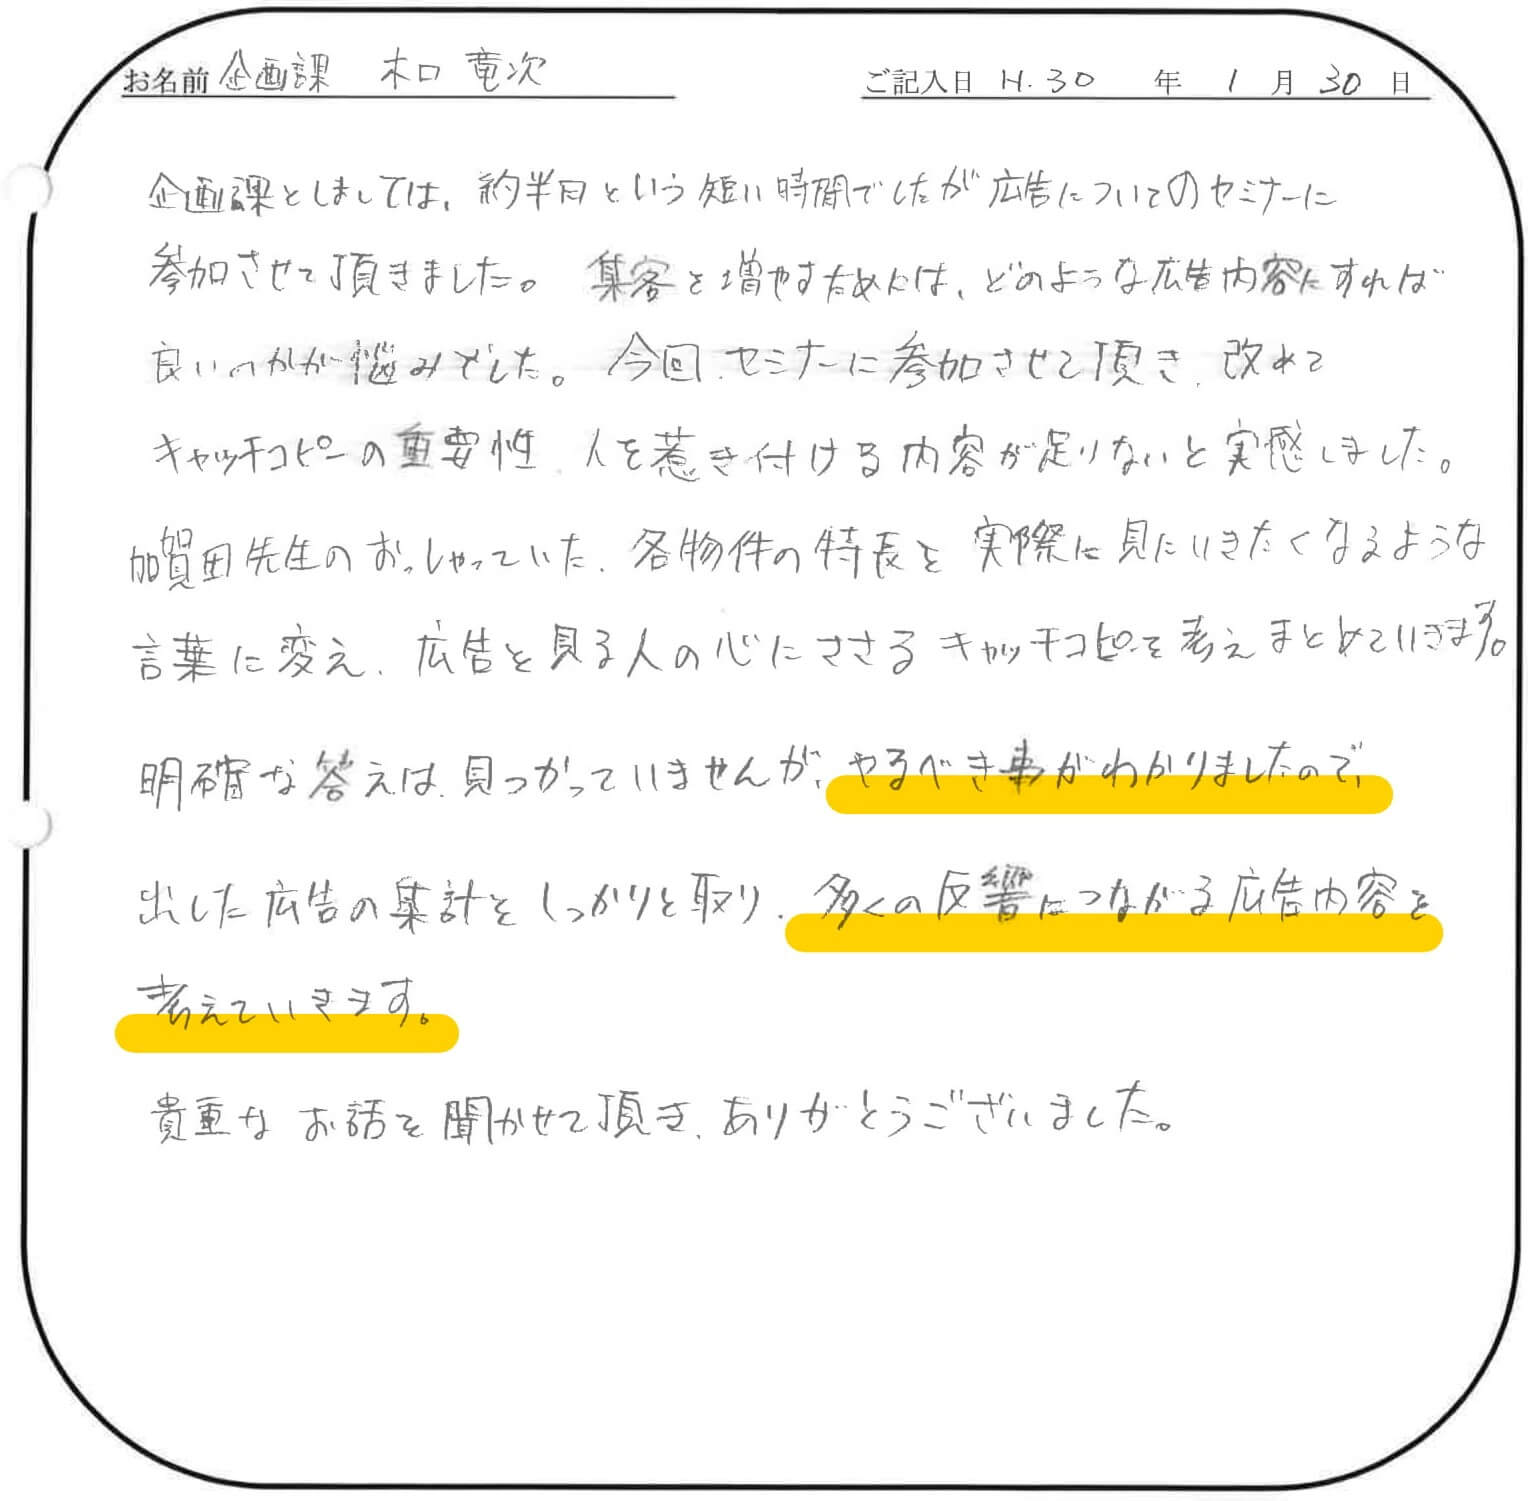 お名前 企画課 木口 竜次 ご記入日 H.30 年 1 月 30 日
企画課としましては、約半日という短い時間でしたが広告についてのセミナーに
参加させて頂きました。集客を増やすためには、どのような広告内容にすれば
良いのかが悩みでした。今回、セミナーに参加させて頂き、改めて
キャッチコピーの重要性、人を惹き付ける内容が足りないと実感しました。
加賀田先生のおっしゃっていた、各物件の特長を実際に見にいきたくなるような
言葉に変え、広告を見る人の心にささるキャッチコピーを考えまとめていきます。
明確な答えは、見つかっていませんが、やるべき事がわかりましたので、
出した広告の集計をしっかりと取り、多くの反響につながる広告内容を
考えていきます。
貴重なお話を聞かせて頂き、ありがとうございました。